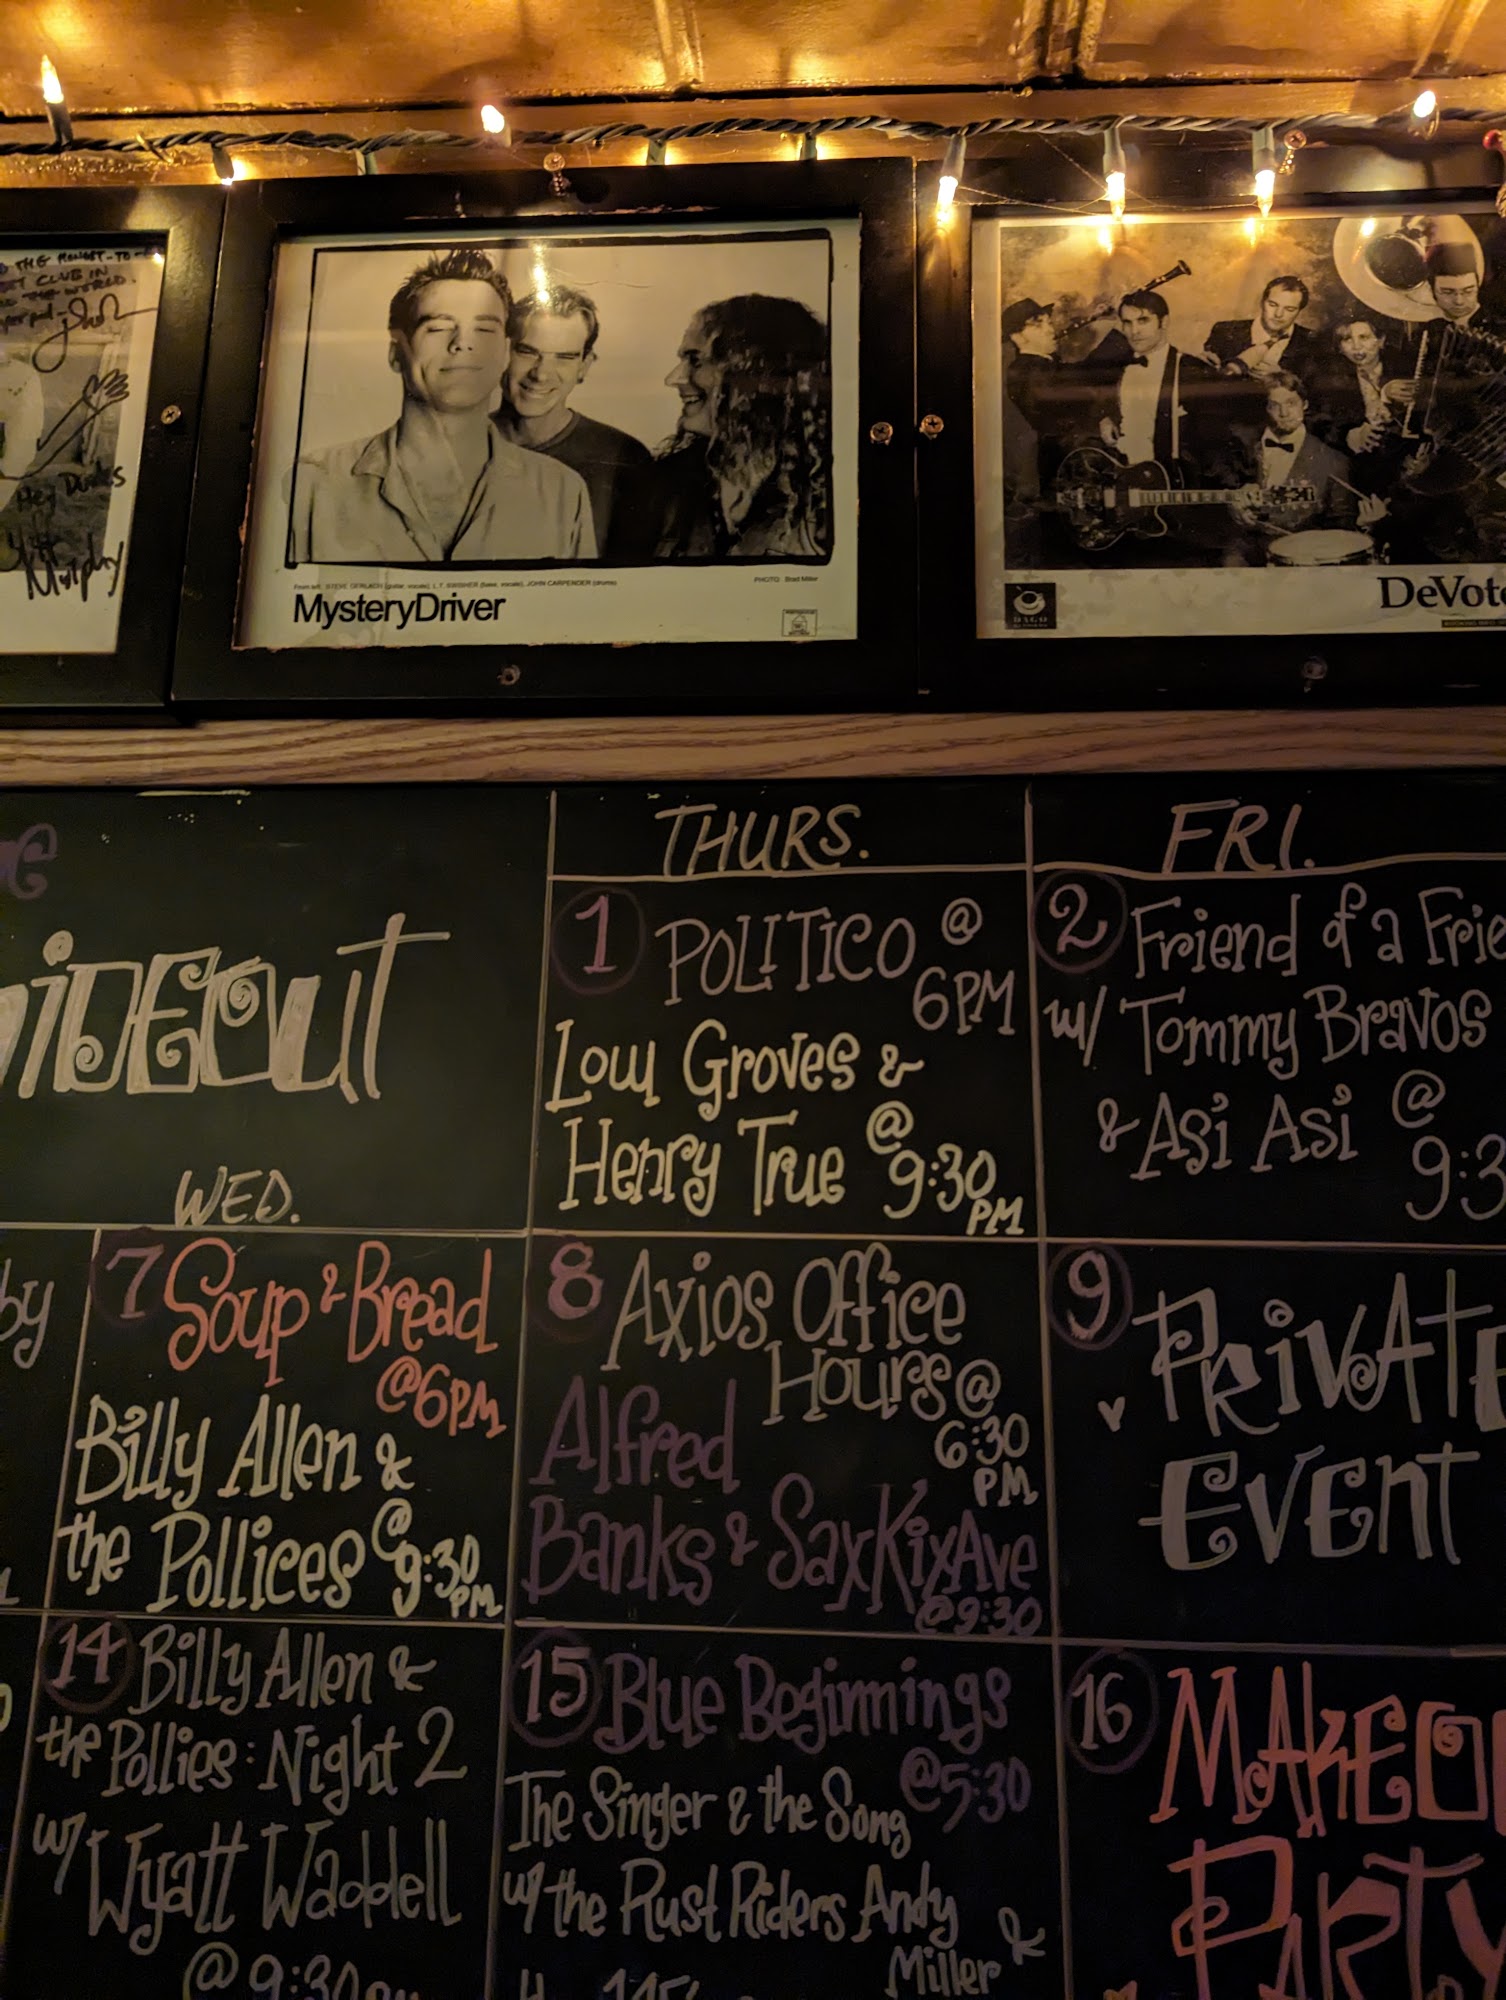 CLUB IN
THE WORLD.
Hey
Murphy
From left: STEVE GERLACH (guitar, vocals), L.T. SWISHER (bass, vocals), JOHN CARPENDER (drums)
PHOTO: Brad Miller
MysteryDriver
DAGO
DeVot
HiDEOut
WED.
THURS.
FRI.
1
POLITICO @
6PM
Lou Groves &
Henry True @
9:30
PM
2
Friend of a Frie
w/ Tommy Bravos
& Asi Asi @
9:3
by
7
Soup & Bread
@6PM
Billy Allen &
the Pollices @
9:30
PM
8
Axios Office
Hours @
6:30
PM
Alfred
Banks & SaxKixAve
@9:30
9
PRivATE
EvEnt
14
Billy Allen &
the Pollies: Night 2
w/ Wyatt Waddell
@ 9:30
15
Blue Beginnings
@5:30
The Singer & the Song
w/ the Rust Riders Andy
Miller &
16
MAKEO
PARTY